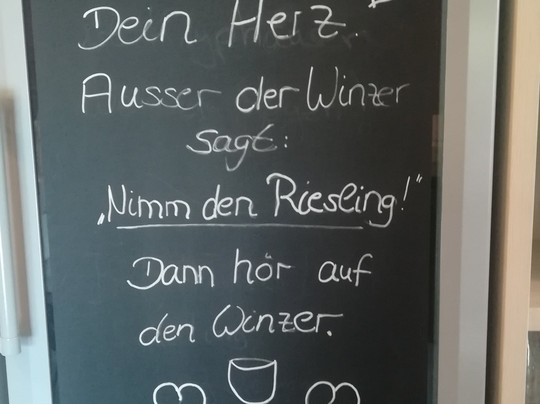 Dein Herz.
Ausser der Winzer
sagt:
„Nimm den Riesling!"
Dann hör auf
den Winzer.